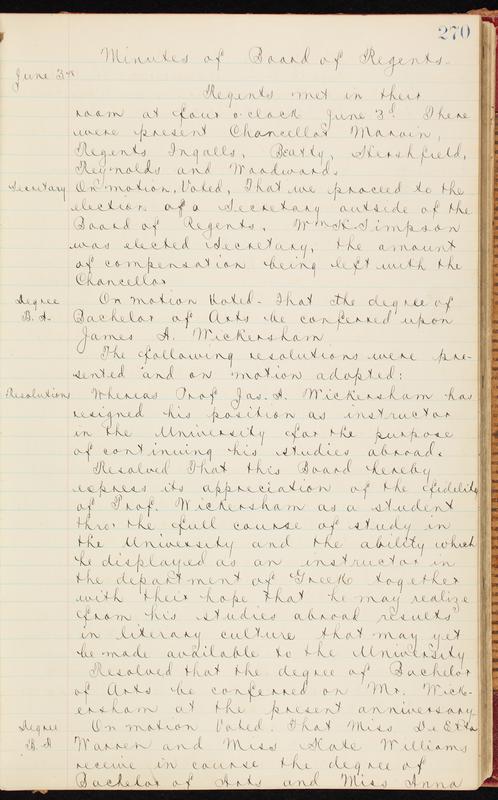 270
Minutes of Board of Regents.
June 3rd
Regents met in their
room at four o'clock June 3d. There
were present Chancellor Marvin,
Regents Ingalls, Beatty, Hershfield,
Reynolds and Woodward.
Secretary On motion, Voted, That we proceed to the
election of a Secretary outside of the
Board of Regents. Wm K. Simpson
was elected Secretary, the amount
of compensation being left with the
Chancellor
Degree On motion Voted. That the degree of
B. A. Bachelor of Arts be conferred upon
James A. Wickersham
The following resolutions were pre-
sented and on motion adopted:
Resolutions Whereas Prof Jas. A. Wickersham has
resigned his position as instructor
in the University for the purpose
of continuing his studies abroad.
Resolved That this Board hereby
express its appreciation of the fidelity
of Prof. Wickersham as a student
thro' the full course of study in
the University and the ability which
he displayed as an instructor in
the department of Greek together
with their hope that he may realize
from his studies abroad results
in literary culture that may yet
be made available to the University
Resolved that the degree of Bachelor
of Arts be conferred on Mr. Wick-
ersham at the present anniversary
Degree On motion Voted. That Miss De Etta
B. A Warren and Miss Kate Williams
receive in course the degree of
Bachelor of Arts and Miss Anna